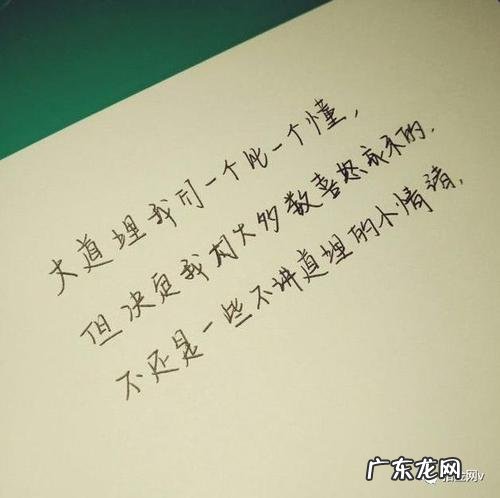 大道理我们一个比一个懂，
但决定我们大多数喜怒哀乐的．
不还是一些不讲道理的小情绪．
广东龙网